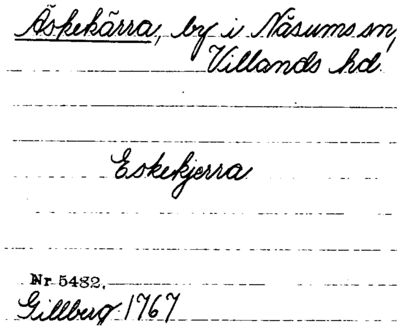 Äskekärra, by i Näsums sn,
Villands hd
Eskekjerra
Nr 5482.
Gillberg 1767